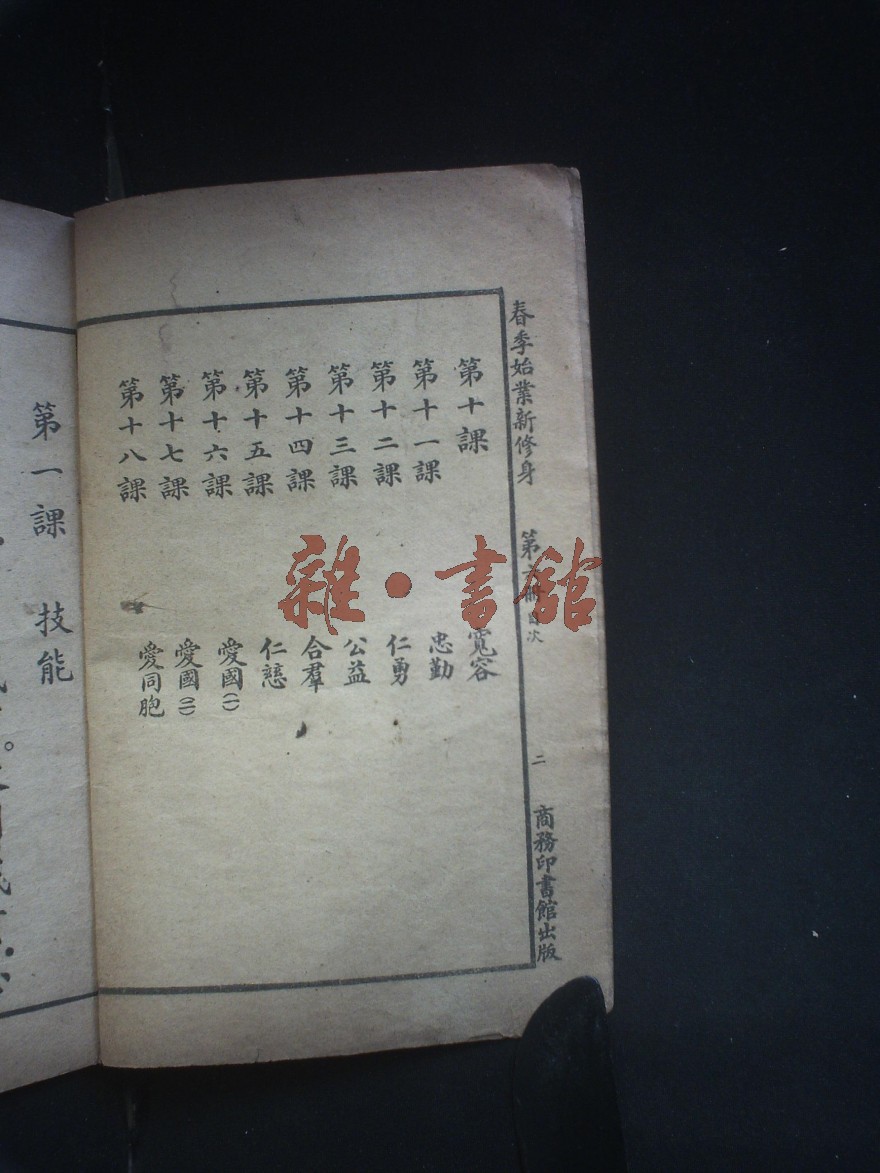 春季始業新修身 第 冊 目次 二 商務印書館出版
第十課 寬容
第十一課 忠勤
第十二課 仁勇
第十三課 公益
第十四課 合羣
第十五課 仁慈
第十六課 愛國(一)
第十七課 愛國(二)
第十八課 愛同胞
第一課 技能
雜·書館